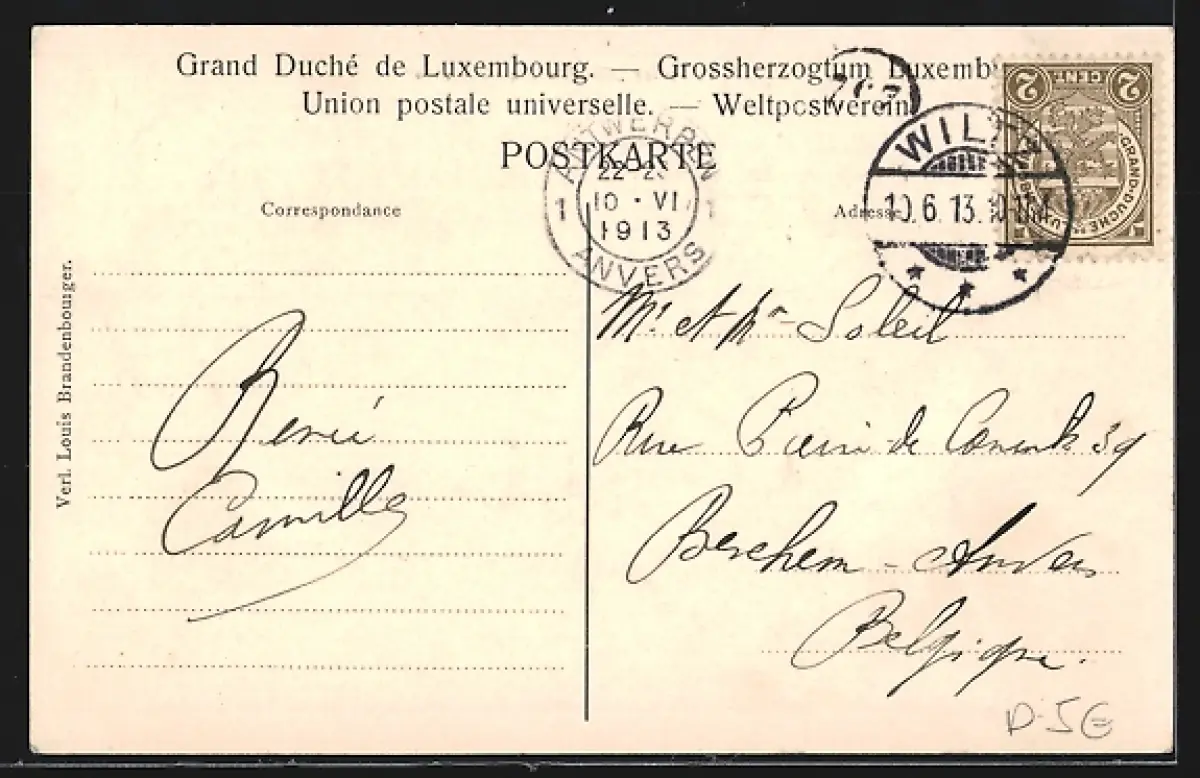 Grand Duché de Luxembourg. — Grossherzogtum Luxemb
Union postale universelle. — Weltpostverein
POSTKARTE
Correspondance
Adresse
ANTWERPEN
1 10 · VI 1
1913
ANVERS
WILTZ
10.6.13. 10-11
2 CENT 2
GRAND-DUCHÉ
Verl. Louis Brandenbourger.
René
Camille
Mr et Mme Soleil
Rue de 39
Berchem - Anvers
Belgique.